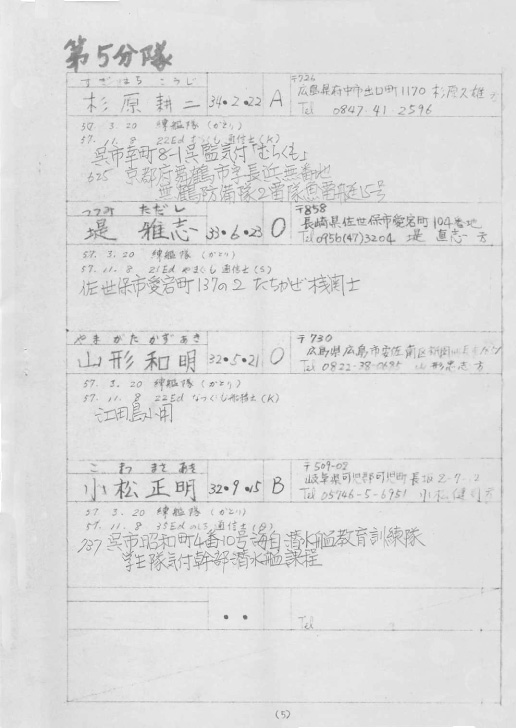 第5分隊
すぎはら こうじ
杉原耕二 34・2・22 A
〒726
広島県府中市出口町1170 杉原久雄方
Tel 0847-41-2596
57. 3. 20 練艦隊 (かとり)
57. 11. 8 22Ed むらくも 通信士 (K)
呉市幸町8-1呉監気付「むらくも」
625 京都府舞鶴市字長浜無番地
舞鶴防衛隊2
つつみ ただし
堤 雅志 33・6・23 O
〒858
長崎県佐世保市愛宕町104番地
Tel 0956(47)3204 堤 直志 方
57. 3. 20 練艦隊 (かとり)
57. 11. 8 21Ed やまぐも 通信士 (S)
佐世保市愛宕町137の2 たちかぜ 機関士
やまがた かずあき
山形和明 32・5・21 O
〒730
広島県広島市安佐南区
Tel 0822-38-
57. 3. 20 練艦隊 (かとり)
57. 11. 8 22Ed なつぐも 船務士 (K)
江田島小用
こまつ まさあき
小松正明 32・9・15 B
〒509-02
岐阜県可児郡可児町長坂2-7-
Tel 05746-5-6951 小松健 方
57. 3. 20 練艦隊 (かとり)
57. 11. 8 35Ed のしろ 通信士
737 呉市昭和町4番10号海自潜水艦教育訓練隊
学生隊気付幹部潜水艦課程
・・
Tel
(5)